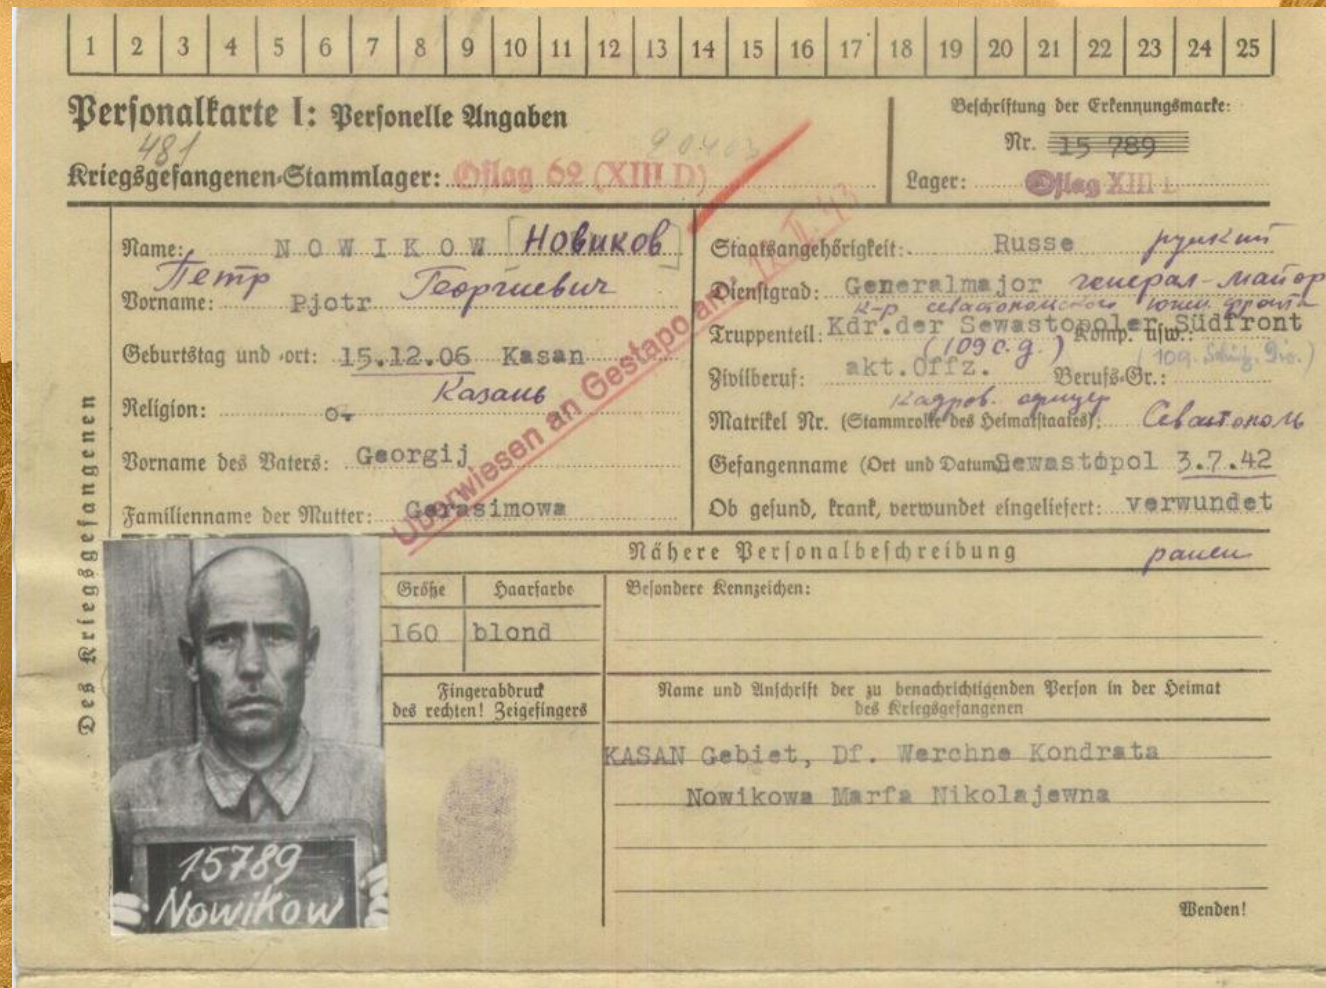 1 2 3 4 5 6 7 8 9 10 11 12 13 14 15 16 17 18 19 20 21 22 23 24 25
Personalkarte I: Personelle Angaben
481
Kriegsgefangenen-Stammlager: Oflag 62 (XIII D)
Beschriftung der Erkennungsmarke:
Nr. 15 789
Lager: Oflag XIII
Überwiesen an Gestapo am
Des Kriegsgefangenen
Name: NOWIKOW Новиков
Петр Георгиевич
Vorname: Pjotr
Geburtstag und -ort: 15.12.06 Kasan
Казань
Religion: o.
Vorname des Vaters: Georgij
Familienname der Mutter: Gerasimowa
Staatsangehörigkeit: Russe
Dienstgrad: Generalmajor генерал-майор
Truppenteil: Kdr.der Sewastopoler Südfront Komp. usw.:
(109 с.д.) (109. Schütz. Div.)
Zivilberuf: akt.Offz. Berufs-Gr.:
Кадров. офицер
Matrikel Nr. (Stammrolle des Heimatstaates): Севастополь
Gefangenname (Ort und Datum Sewastopol 3.7.42
Ob gesund, krank, verwundet eingeliefert: verwundet
ранен
Nähere Personalbeschreibung
Größe Haarfarbe Besondere Kennzeichen:
160 blond
Fingerabdruck
des rechten! Zeigefingers
Name und Anschrift der zu benachrichtigenden Person in der Heimat
des Kriegsgefangenen
KASAN Gebiet, Df. Werchne Kondrata
Nowikowa Marfa Nikolajewna
15789
Nowikow
Wenden!